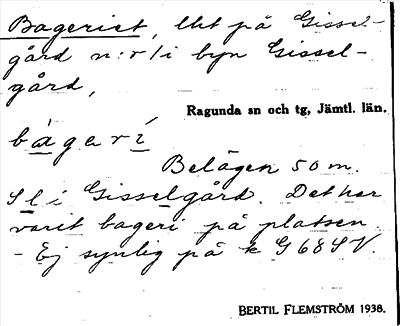 Bageriet, lht på Gissel-
gård n:r 1 i byn Gissel-
gård,
Ragunda sn och tg, Jämtl. län.
bàgerí
Belägen 50 m.
S l i Gisselgård. Det har
varit bageri på platsen.
- Ej synlig på k G 68 SV.
BERTIL FLEMSTRÖM 1938.